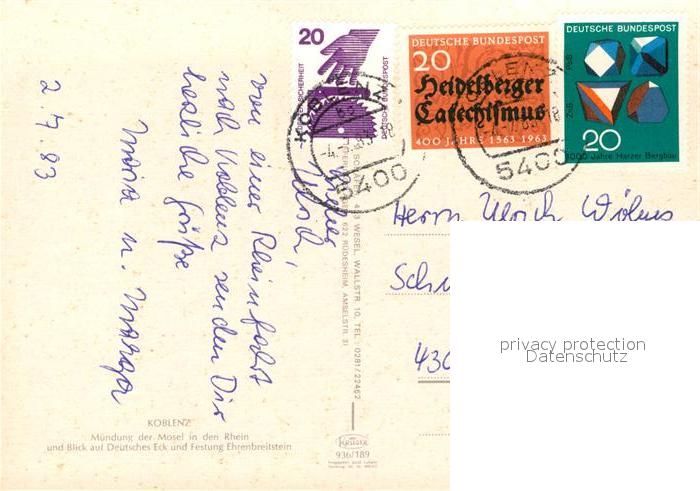 20
SICHERHEIT
DEUTSCHE BUNDESPOST
DEUTSCHE BUNDESPOST
20
Heidelberger
Catechismus
400 JAHRE 1563 1963
DEUTSCHE BUNDESPOST
PbS
ZnS
20
1000 Jahre Harzer Bergbau
KOBLENZ
5400
5400
2.7.83
Lieber
Ulrich,
von einer Rheinfahrt
nach Koblenz senden Dir
herzliche Grüße
Maria u.
Herrn Ulrich
430
WESEL, WALLSTR. 10, TEL.: 0281/22462
622 RÜDESHEIM, AMSELSTR. 31
KOBLENZ
Mündung der Mosel in den Rhein
und Blick auf Deutsches Eck und Festung Ehrenbreitstein
KRÜGER
936/189
privacy protection
Datenschutz